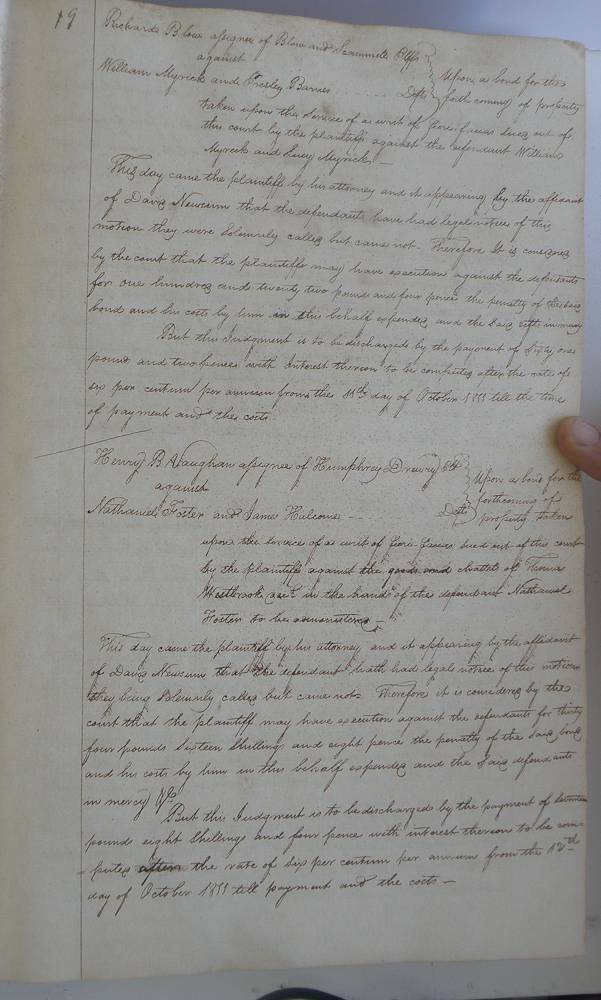 19
Richard Blow assignee of Blow and Scammell Plff
against
Upon a bond for the
William Myrick and Presley Barnes Defts
forthcoming of property
taken upon the service of a writ of fieri facias sued out of
this court by the plaintiff against the defendant William
Myrick and Lucy Myrick —
This day came the plaintiff by his attorney and it appearing by the affidavit
of Davis Newsum that the defendants have had legal notice of this
motion they were solemnly called but came not. Therefore It is considered
by the court that the plaintiff may have execution against the defendants
for one hundred and twenty two pound and four pence the penalty of the said
bond and his costs by him in this behalf expended and the said defts in mercy
But this Judgment is to be discharged by the payment of Sixty one
pound and two pence with interest thereon to be computed after the rate of
six per centum per annum from the 11th day of October 1811 till the time
of payment and the costs.
Henry B. Vaughan assignee of Humphrey Drewry Plf
against
Upon a bond for the
forthcoming of
Nathaniel Foster and James Halcome Defts
property taken
upon the service of a writ of fieri facias sued out of this court
by the plaintiff against the goods and chattels of Thomas
Westbrook decd. in the hands of the defendant Nathaniel
Foster to be administered —
This day came the plaintiff by his attorney and it appearing by the affidavit
of Davis Newsum that the defendant hath had legal notice of this motion
they being solemnly called but came not. Therefore it is considered by the
court that the plaintiff may have execution against the defendants for thirty
four pounds sixteen shillings and eight pence the penalty of the said bond
and his costs by him in this behalf expended and the said defendants
in mercy &c.
But this Judgment is to be discharged by the payment of seventeen
pounds eight shillings and four pence with interest thereon to be com-
-puted after the rate of six per centum per annum from the 12th
day of October 1811 till payment and the costs —